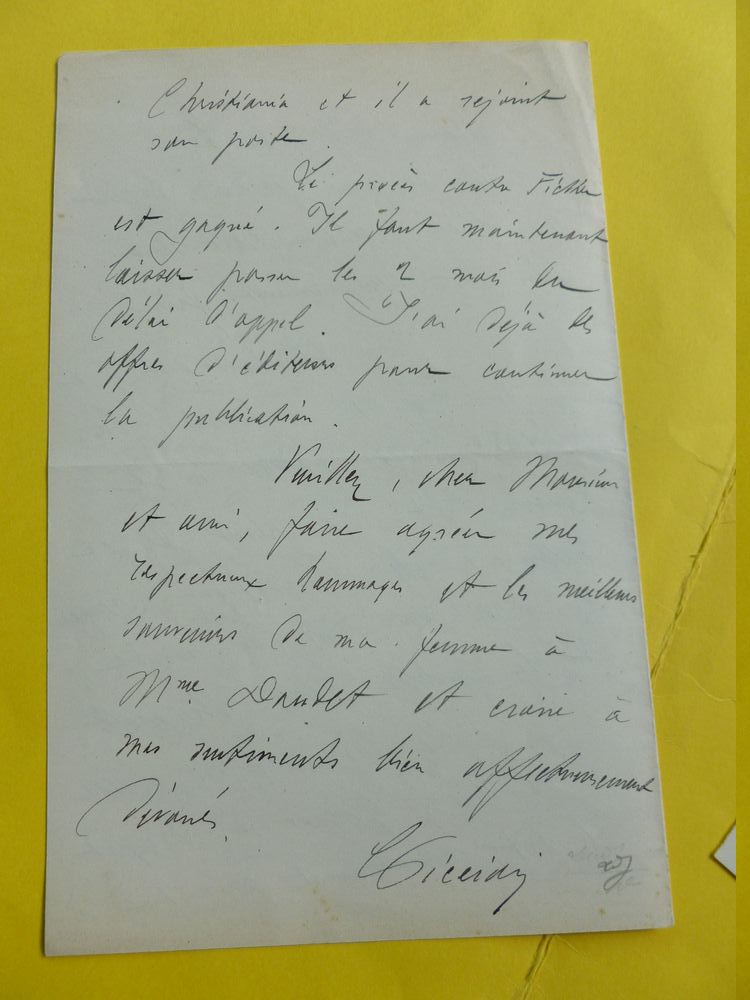 Christiania et il a rejoint
son poste.
Le procès contre
est gagné. Il faut maintenant
laisser passer les 2 mois du
délai d'appel. J'ai déjà des
offres d'éditeurs pour continuer
la publication.
Veuillez, cher Monsieur
et ami, faire agréer mes
respectueux hommages et les meilleurs
souvenirs de ma femme à
Mme Daudet et croire à
mes sentiments bien affectueusement
dévoués.